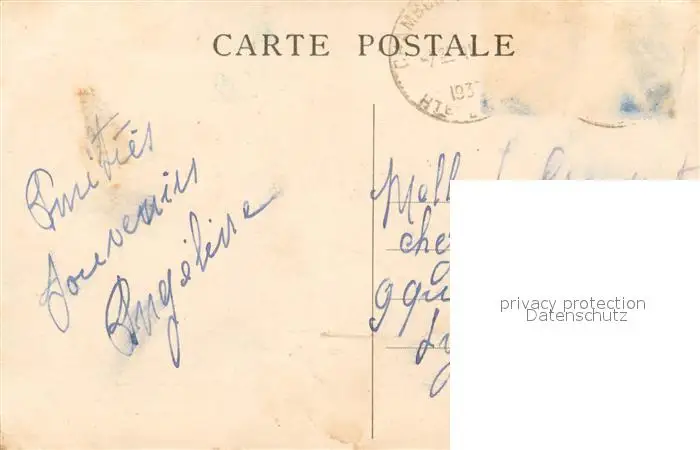 CARTE POSTALE
CHAMBER
193
Amitiés
Souvenirs
Angéline
Mell
chez
9 qu
Ly
privacy protection
Datenschutz